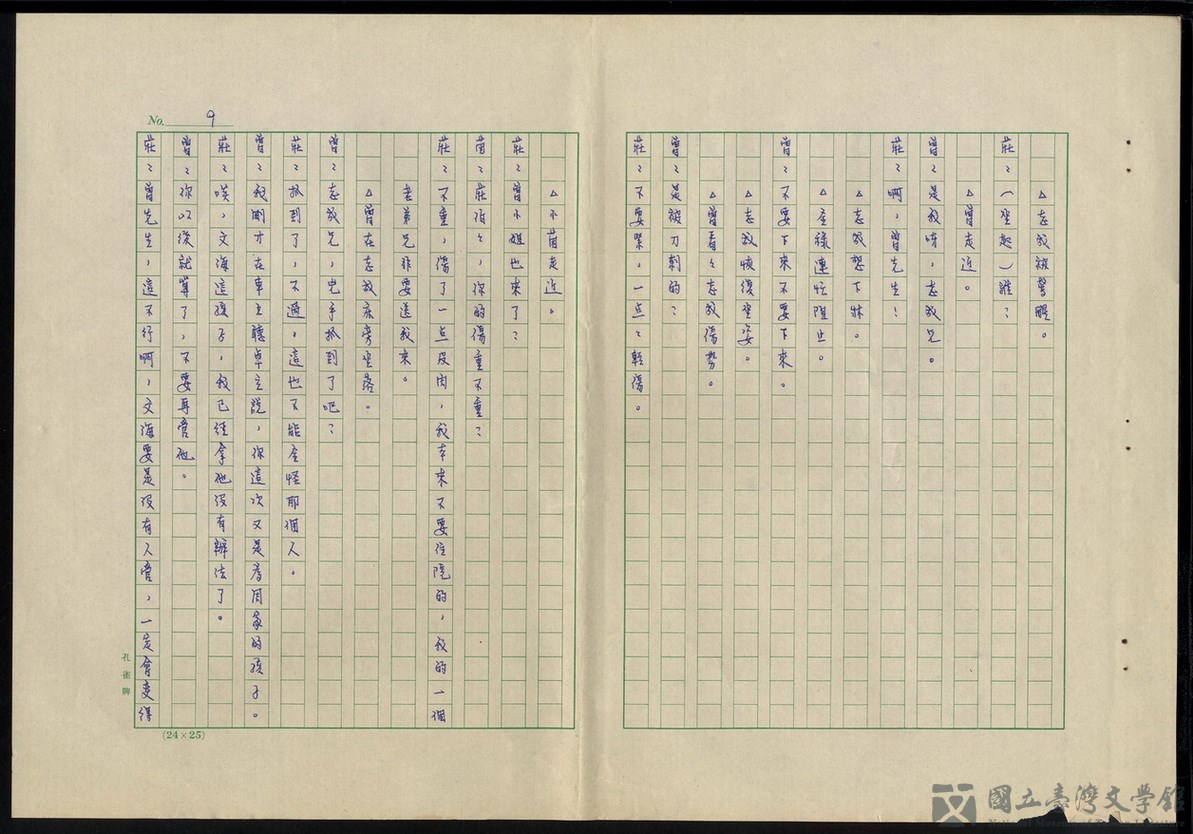 △志成被驚醒。
莊：（坐起）誰？
△曾走近。
曾：是我呀，志成兄。
莊：啊，曾先生！
△志成想下牀。
曾：不要下來不要下來。
△金祿連忙阻止。
△志成恢復坐姿。
△曾看看志成傷勢。
曾：是被刀刺的？
莊：不要緊，一点点輕傷。
No. 9
△小茵走近。
莊：曾小姐也來了？
茵：莊伯伯，你的傷重不重？
莊：不重，傷了一点皮肉，我本來不要住院的，我的一個
老弟兄非要送我來。
△曾在志成床旁坐落。
曾：志成兄，兇手抓到了吧？
莊：抓到了，不過，這也不能全怪那個人。
曾：我剛才在車上聽卓立說，你這次又是為周家的孩子。
莊：唉，文海這孩子，我已經拿他沒有辦法了。
曾：你以後就算了，不要再管他。
莊：曾先生，這不行啊，文海要是沒有人管，一定會變得
孔雀牌
(24×25)
國立臺灣文學館